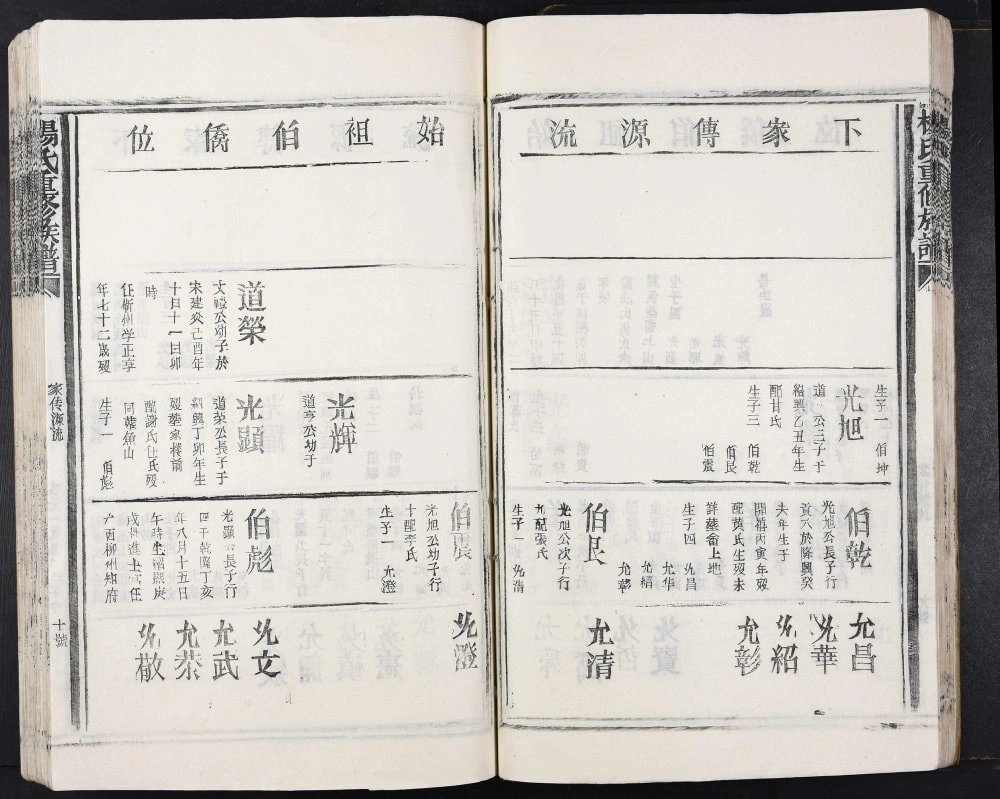 下家傳源流
生子一 伯坤
光旭
道
公三子于
紹興乙丑年生
配甘氏
生子三 伯乾
伯艮
伯震
伯乾
光旭公長子行
於隆興癸
未年生于
開禧丙寅年歿
配黃氏生歿未
詳葬畲上地
生子四 允昌
允華
允紹
允彰
伯艮
光旭公次子行
九配張氏
生子一 允清
允昌
允華
允紹
允彰
允清
楊氏重修族譜
始祖伯僑位
道榮
文 公幼子於
宋建炎己酉年
十日十一日卯
時
任蘄州学正享
年七十二歲歿
光輝
道亨公幼于
光顯
道荣公長子于
紹興丁卯年生
歿葬家樓前
配謝氏任氏歿
同葬魚山
生子一 伯彪
伯震
光旭公幼子行
十配李氏
生子一 允澄
伯彪
光顯公長子行
四于乾隆丁亥
年八月十五日
午時生紹熙庚
戌科進士官任
广西柳州知府
允澄
允文
允武
允恭
允敬
楊氏重修族譜
家传源流
十號